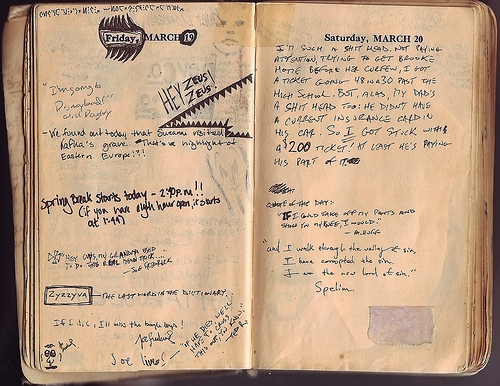 Friday, MARCH 19
HEY ZEUS
ZEUS!
I'm going to
Disneyland
with Paisley
-We found out today that Suzanna visited
Kafka's grave. That's the highlight of
Eastern Europe!!!
Spring Break starts today - 2:40 p.m.!!
(if you have eighth hour open, it starts
at 1:47)
"HEY GUYS, MY GRANDPA USED
TO DO THIS REAL DAMN TRICK....
Zyzzyva - THE LAST WORD IN THE DICTIONARY.
If I die, I'll miss the bugle boys!
Joe lives! -
"IF HE DIES, WE'LL
HAVE TO CAUSE
THIS NOT, YOU KNOW."
Saturday, MARCH 20
I'M SUCH A SHIT HEAD. NOT PAYING
ATTENTION, TRYING TO GET BROOKE
HOME BEFORE HER CURFEW, I GOT
A TICKET GOING 48 IN A 30 PAST THE
HIGH SCHOOL. BUT, ALAS, MY DAD'S
A SHIT HEAD TOO: HE DIDN'T HAVE
A CURRENT INSURANCE CARD IN
HIS CAR. SO I GOT STUCK WITH
A $200 TICKET! AT LEAST HE'S PAYING
HIS PART OF IT
QUOTE OF THE DAY:
"IF I COULD TAKE OFF MY PANTS AND
SHOW YOU MY KNEE, I WOULD."
"and I walk through the valley of sin,
I have corrupted the sin.
I am the new lord of sin."
Spelin.